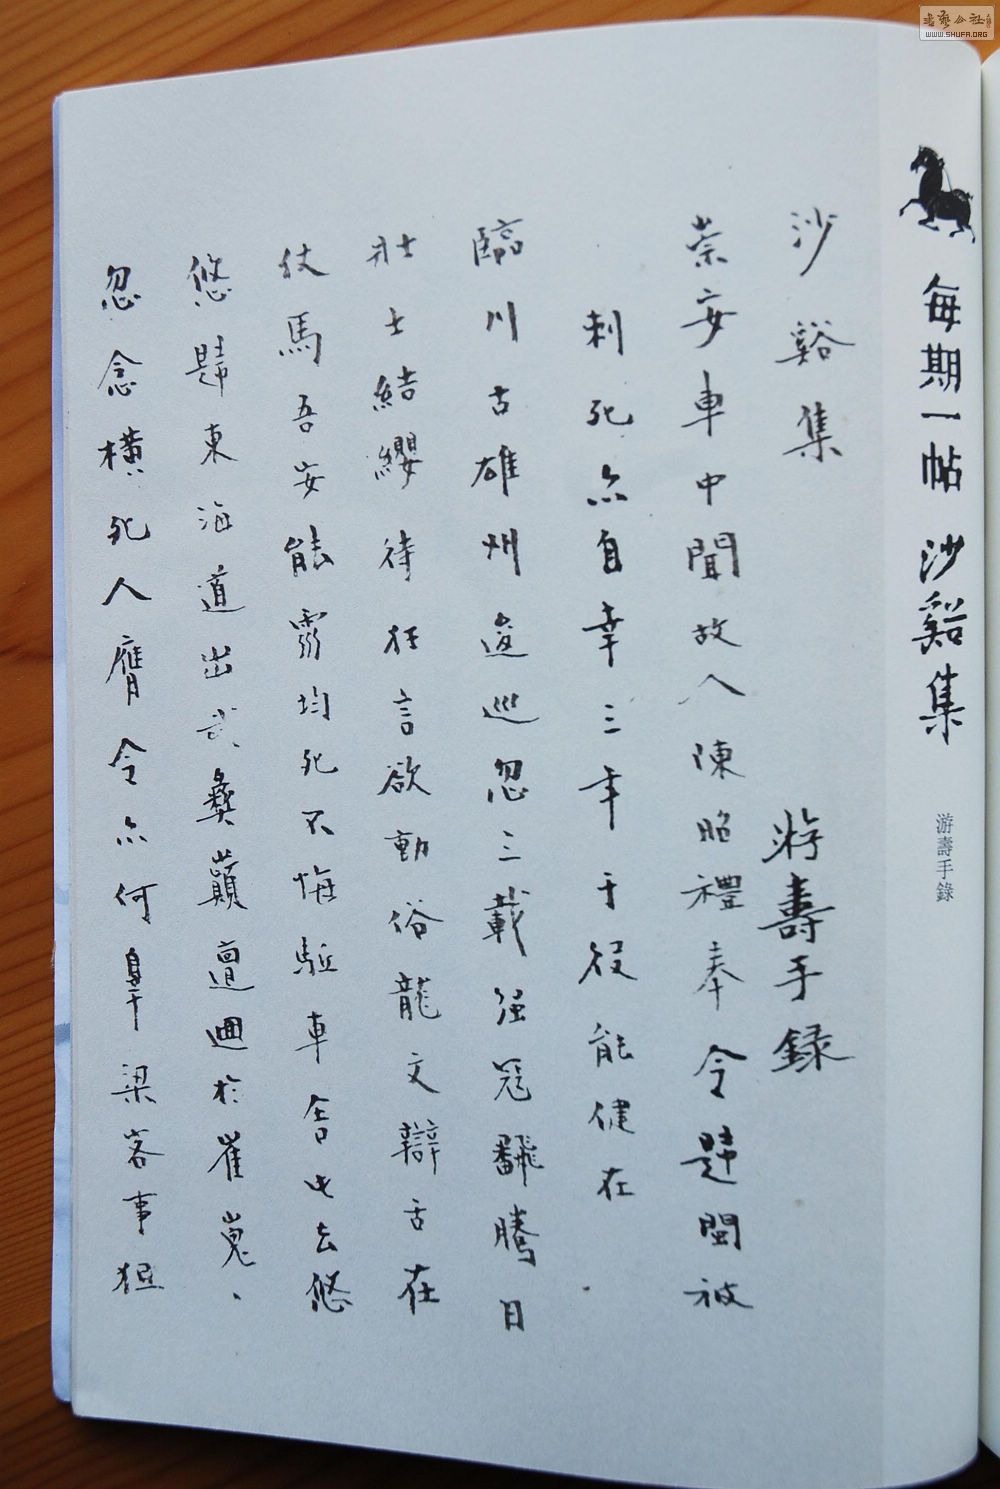 書藝公社
WWW.SHUFA.ORG
每期一帖 沙谿集
游壽手錄
沙谿集 游壽手錄
崇安車中聞故人陳昭禮奉令歸閩被
刺死亦自幸三年于役能健在
臨川古雄州逡巡忽三載强冠翻騰日
壯士結纓待狂言欲動俗龍文辯舌在
仗馬吾安能雰均死不悔驅車舍此去悠
悠歸東海道出武彝巔邅迴於崔嵬、
忽念橫死人膺令亦何辜梁客事